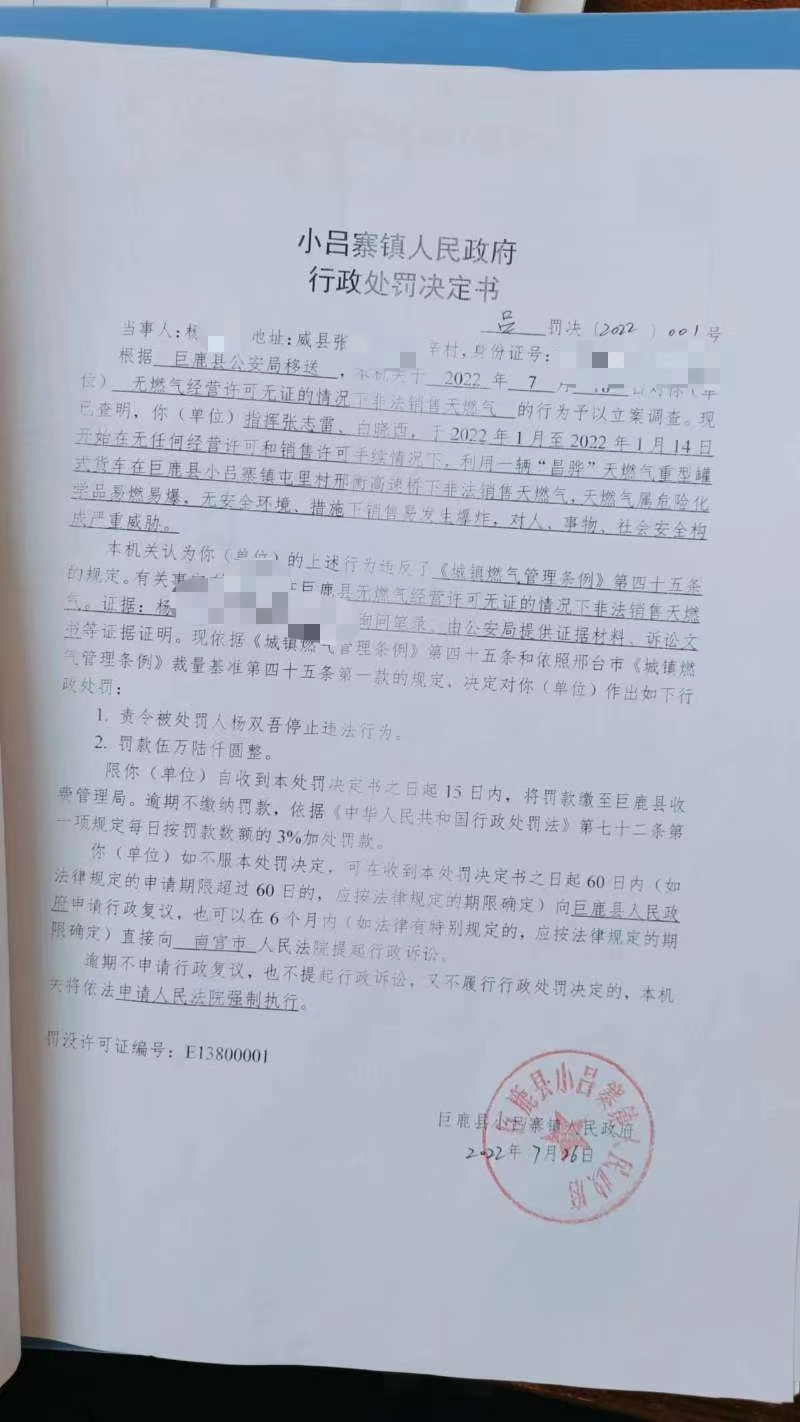 小吕寨镇人民政府
行政处罚决定书
吕 罚决〔2022〕001号
当事人:杨 地址:威县张 辛村,身份证号:
根据 巨鹿县公安局移送 ,本机关于 2022 年 7 月 日对你(单
位) 无燃气经营许可无证的情况下非法销售天燃气 的行为予以立案调查。现
已查明,你(单位)指挥张志雷、白晓西,于2022年1月至2022年1月14日
开始在无任何经营许可和销售许可手续情况下,利用一辆“昌骅”天燃气重型罐
式货车在巨鹿县小吕寨镇屯里村邢衡高速桥下非法销售天燃气,天燃气属危险化
学品易燃易爆,无安全环境、措施下销售易发生爆炸,对人、事物、社会安全构
成严重威胁。
本机关认为你(单位)的上述行为违反了《城镇燃气管理条例》第四十五条
的规定。有关事实 在巨鹿县无燃气经营许可无证的情况下非法销售天燃
气。证据:杨 询问笔录、由公安局提供证据材料、诉讼文
书等证据证明。现依据《城镇燃气管理条例》第四十五条和依照邢台市《城镇燃
气管理条例》裁量基准第四十五条第一款的规定,决定对你(单位)作出如下行
政处罚:
1. 责令被处罚人杨双吾停止违法行为。
2. 罚款伍万陆仟圆整。
限你(单位)自收到本处罚决定书之日起15日内,将罚款缴至巨鹿县收
费管理局。逾期不缴纳罚款,依据《中华人民共和国行政处罚法》第七十二条第
一项规定每日按罚款数额的3%加处罚款。
你(单位)如不服本处罚决定,可在收到本处罚决定书之日起60日内(如
法律规定的申请期限超过60日的,应按法律规定的期限确定)向巨鹿县人民政
府申请行政复议,也可以在6个月内(如法律有特别规定的,应按法律规定的期
限确定)直接向 南宫市 人民法院提起行政诉讼。
逾期不申请行政复议,也不提起行政诉讼,又不履行行政处罚决定的,本机
关将依法申请人民法院强制执行。
罚没许可证编号:E13800001
巨鹿县小吕寨镇人民政府
2022年7月26日
巨鹿县小吕寨镇人民政府